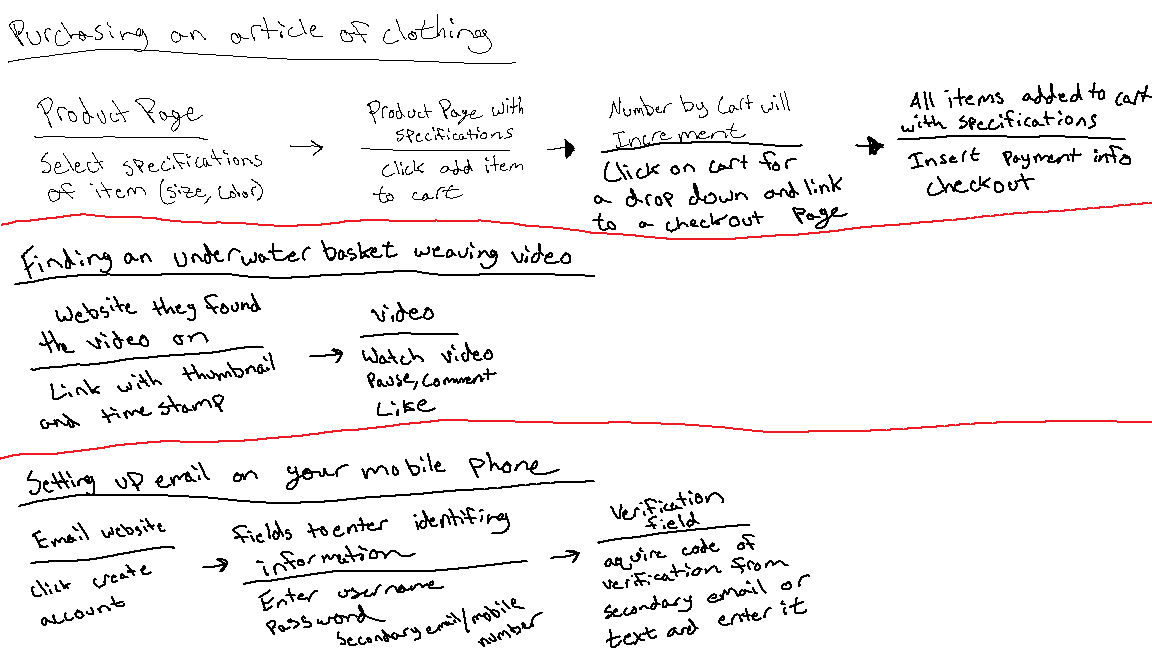 Purchasing an article of clothing
Product Page
Select specifications
of item (size, color)
Product Page with
specifications
Click add item
to cart
Number by Cart will
Increment
Click on cart for
a drop down and link
to a checkout Page
All items added to cart
with specifications
Insert Payment info
checkout
Finding an underwater basket weaving video
Website they found
the video on
Link with thumbnail
and time stamp
video
Watch video
Pause, Comment
Like
Setting up email on your mobile phone
Email website
Click create
account
Fields to enter identifing
information
Enter username
Password
Secondary email/mobile
number
Verification
field
aquire code of
verification from
secondary email or
text and enter it